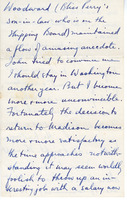 Woodward (Bliss Perry's
son-in-law who is on the
Shipping Board) maintained
a flow of amusing anecdote.
John tried to convince me
I should stay in Washington
another year. But I become
more & more unconvincible.
Fortunately the decision to
return to Madison becomes
more & more satisfactory as
the time approaches notwith-
standing it may seem worldly
foolish to throw up an in-
teresting job with a salary now